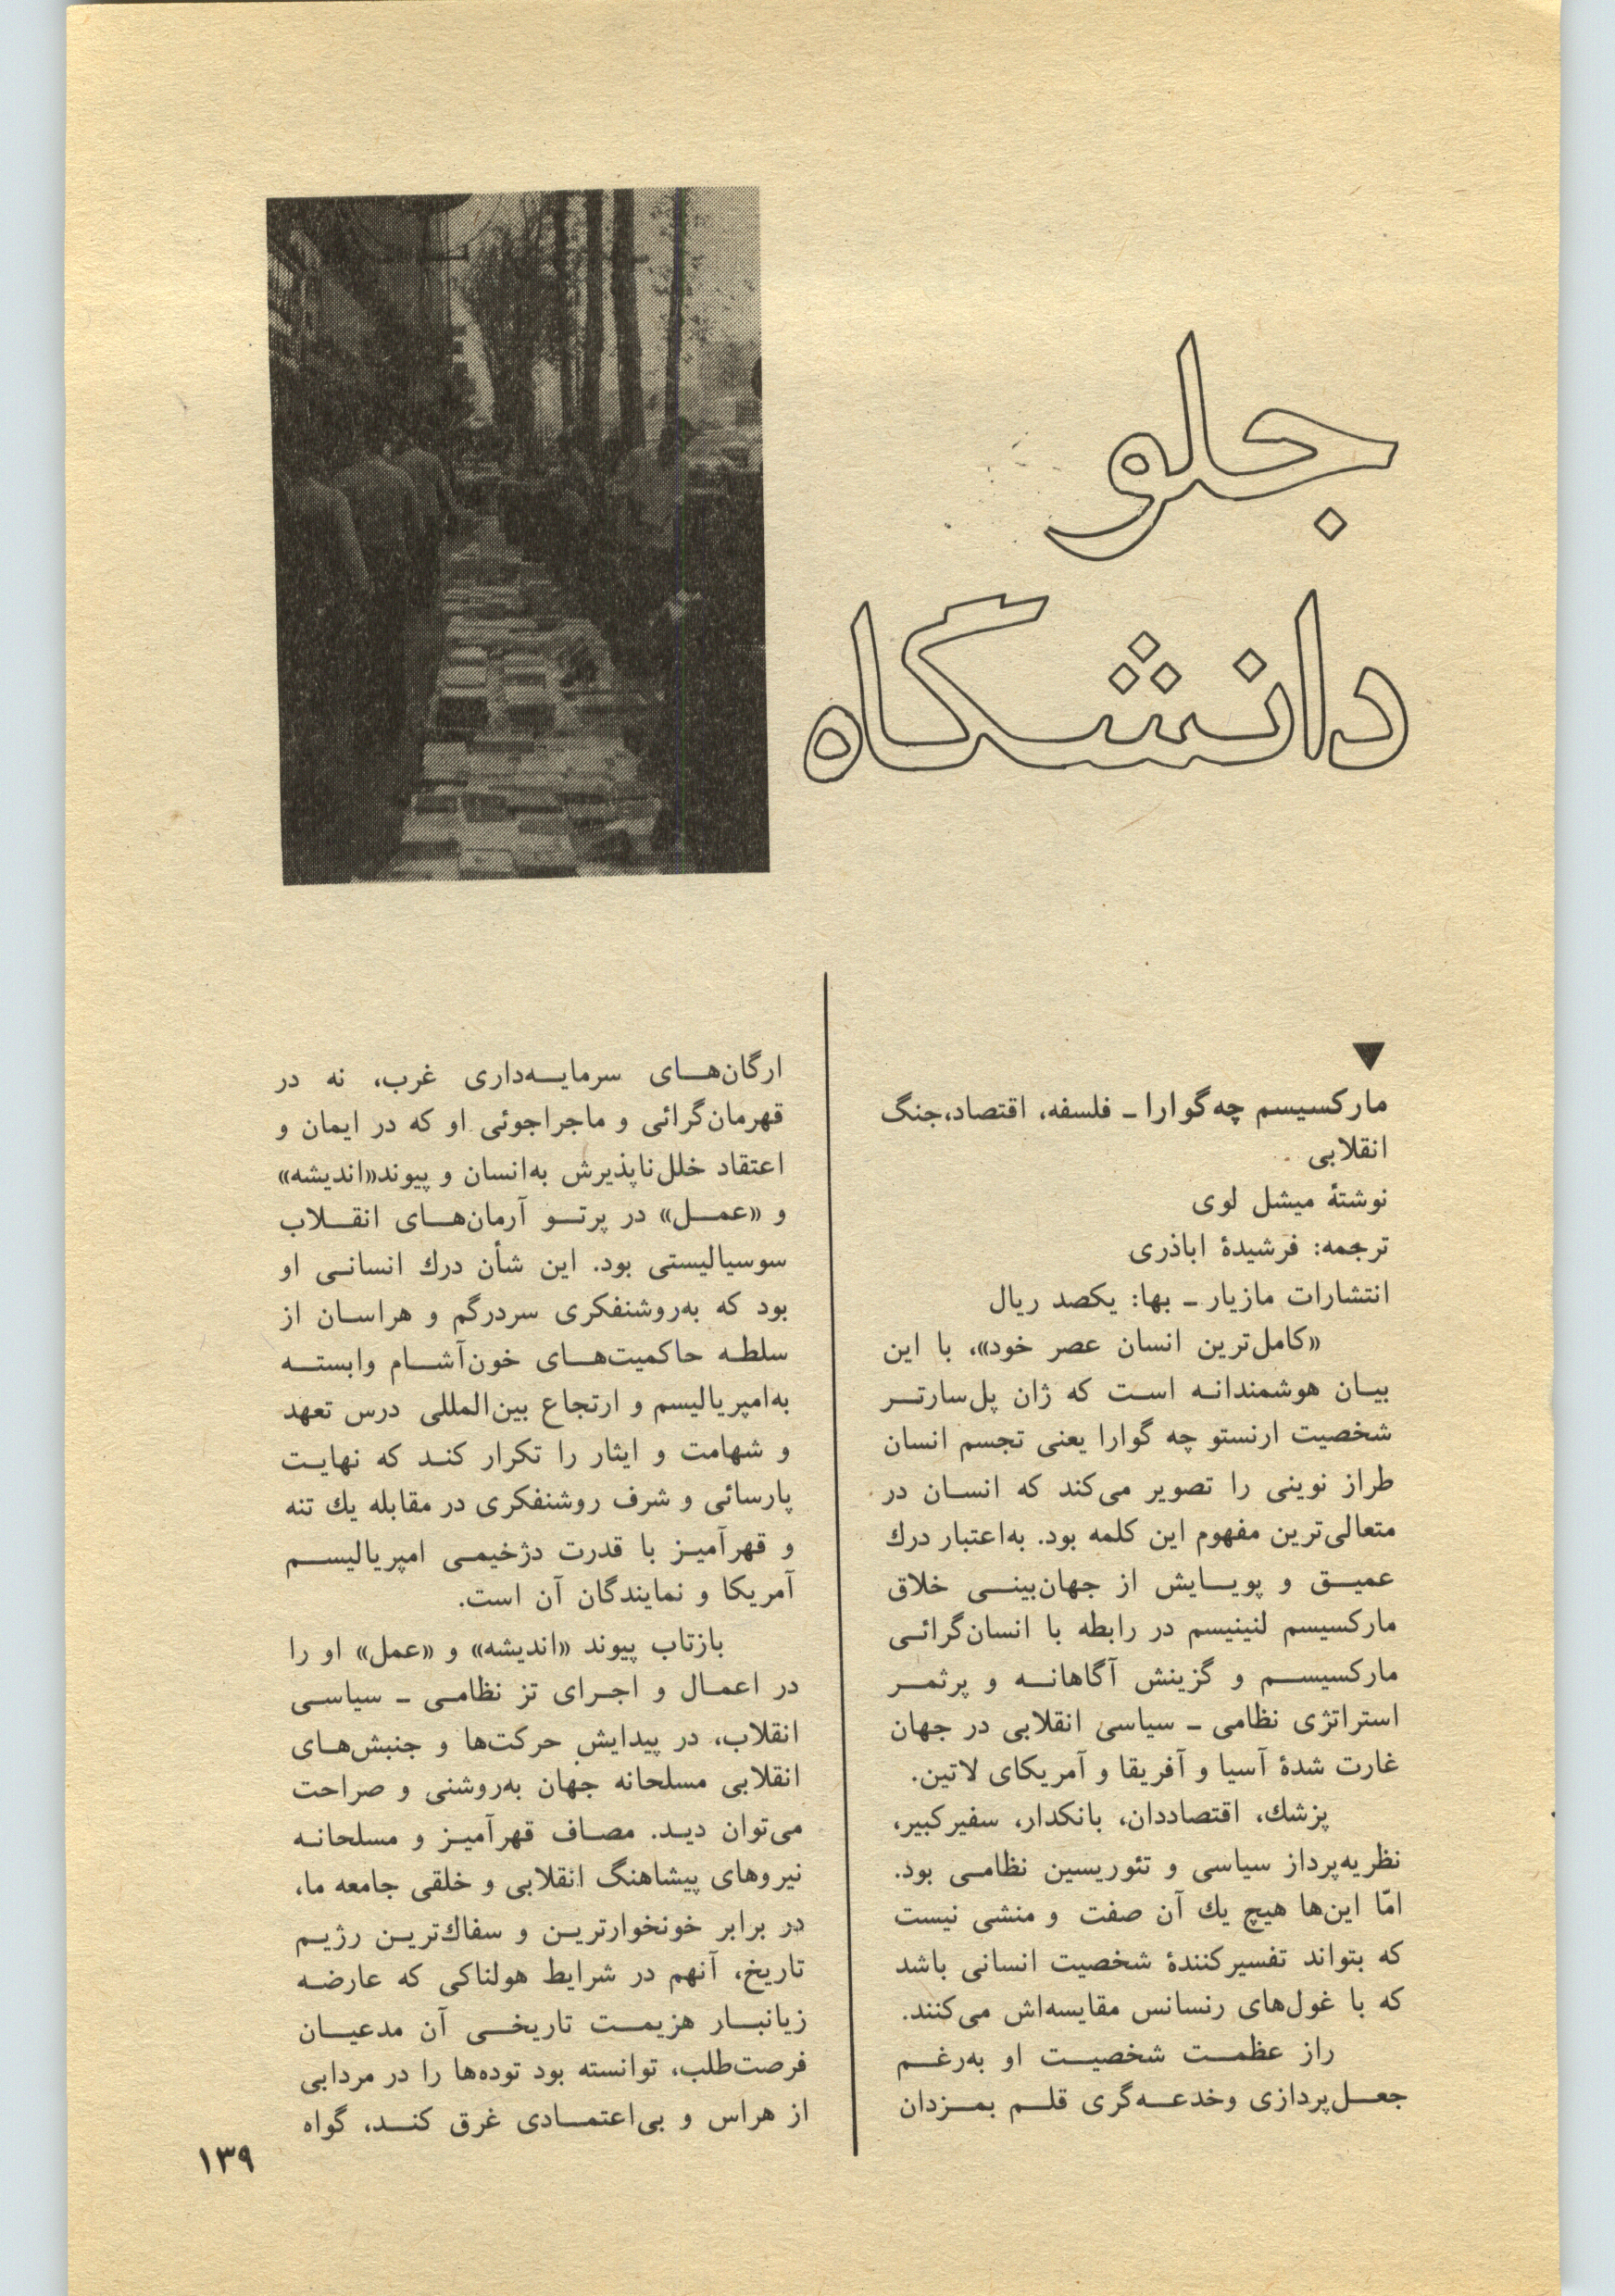 جلو
دانشگاه
▼
مارکسیسم چه‌گوارا ـ فلسفه، اقتصاد،جنگ
انقلابی
نوشتهٔ میشل لوی
ترجمه: فرشیدهٔ اباذری
انتشارات مازیار ـ بها: یکصد ریال
«کامل‌ترین انسان عصر خود»، با این
بیـان هوشمندانـه اسـت که ژان پل‌سارتـر
شخصیت ارنستو چه گوارا یعنی تجسم انسان
طراز نوینی را تصویر می‌کند که انسـان در
متعالی‌ترین مفهوم این کلمه بود. به‌اعتبار درك
عمیـق و پویـایش از جهان‌بینـی خلاق
مارکسیسم لنینیسم در رابطه با انسان‌گرائـی
مارکسیسـم و گزینش آگاهانـه و پرثمـر
استراتژی نظامی ـ سیاسی انقلابی در جهان
غارت شدهٔ آسیا و آفریقا و آمریکای لاتین.
پزشك، اقتصاددان، بانکدار، سفیرکبیر،
نظریه‌پرداز سیاسی و تئوریسین نظامـی بود.
امّا این‌ها هیچ یك آن صفت و منشی نیست
که بتواند تفسیرکنندهٔ شخصیت انسانی باشد
که با غول‌های رنسانس مقایسه‌اش می‌کنند.
راز عظمـت شخصیـت او به‌رغـم
جعـل‌پردازی وخدعـه‌گری قلـم بمـزدان
ارگان‌هـای سرمایـه‌داری غرب، نه در
قهرمان‌گرائی و ماجراجوئی او که در ایمان و
اعتقاد خلل‌ناپذیرش به‌انسان و پیوند«اندیشه»
و «عمـل» در پرتـو آرمان‌هـای انقـلاب
سوسیالیستی بود. این شأن درك انسانـی او
بود که به‌روشنفکری سردرگم و هراسـان از
سلطـه حاکمیت‌هـای خون‌آشـام وابستـه
به‌امپریالیسم و ارتجاع بین‌المللی درس تعهد
و شهامت و ایثار را تکرار کنـد که نهایـت
پارسائی و شرف روشنفکری در مقابله یك تنه
و قهرآمیـز با قدرت دژخیمـی امپریالیسـم
آمریکا و نمایندگان آن است.
بازتاب پیوند «اندیشه» و «عمل» او را
در اعمـال و اجـرای تز نظامـی ـ سیاسـی
انقلاب، در پیدایش حرکت‌ها و جنبش‌هـای
انقلابی مسلحانه جهان به‌روشنی و صراحت
می‌توان دیـد. مصـاف قهرآمیـز و مسلحانـه
نیروهای پیشاهنگ انقلابی و خلقی جامعه ما،
در برابر خونخوارتریـن و سفاك‌تریـن رژیـم
تاریخ، آنهم در شرایط هولناکی که عارضـه
زیانبـار هزیمـت تاریخـی آن مدعیـان
فرصت‌طلب، توانسته بود توده‌ها را در مردابی
از هراس و بی‌اعتمـادی غرق کنـد، گواه
۱۳۹